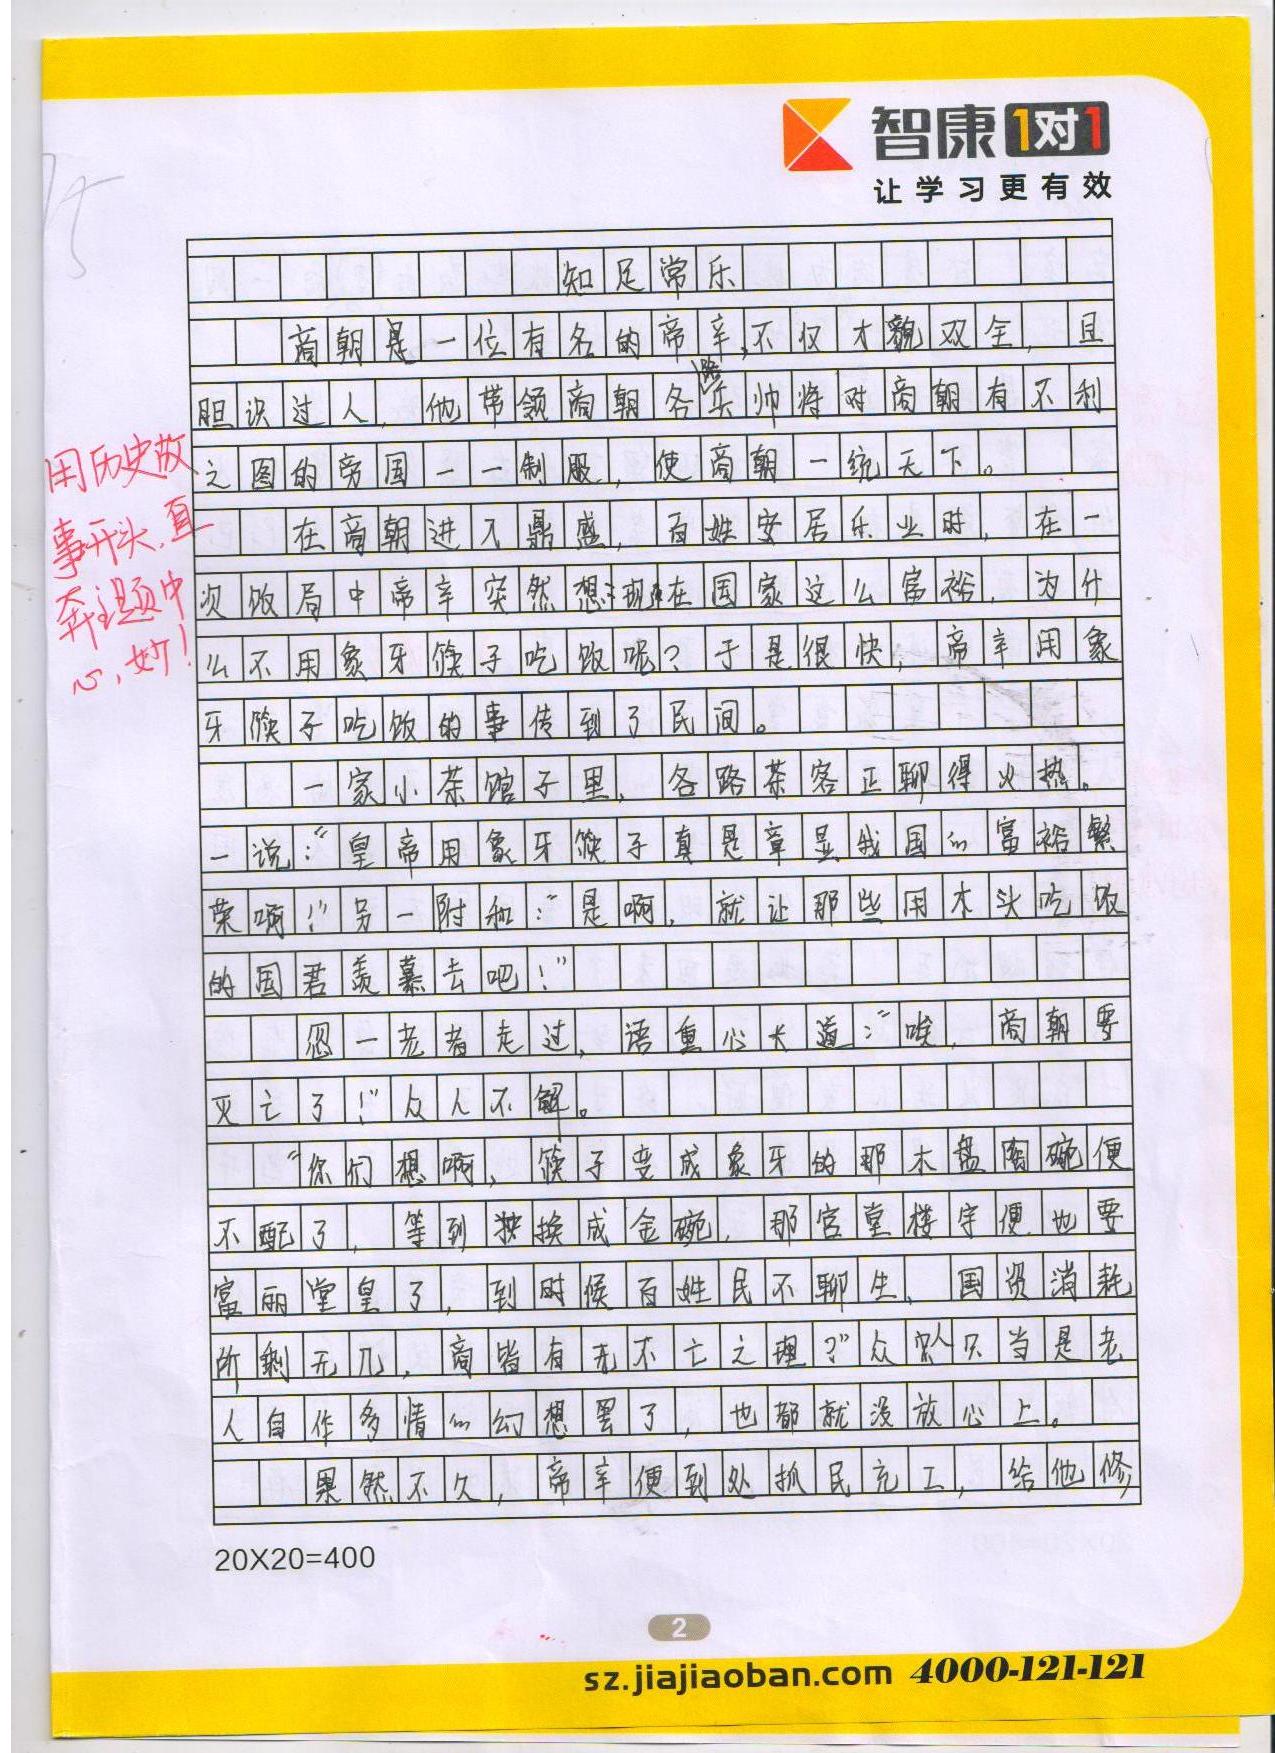 智康1对1
让学习更有效
知足常乐
商朝是一位有名的帝辛,不仅才貌双全,且
胆识过人,他带领商朝各路兵帅将对商朝有不利
之图的旁国一一制服,使商朝一统天下。
在商朝进入鼎盛,百姓安居乐业时,在一
次饭局中帝辛突然想:现在国家这么富裕,为什
么不用象牙筷子吃饭呢?于是很快,帝辛用象
牙筷子吃饭的事传到了民间。
一家小茶馆子里,各路茶客正聊得火热。
一说:“皇帝用象牙筷子真是章显我国的富裕繁
荣啊!”另一附和:“是啊,就让那些用木头吃饭
的国君羡慕去吧!”
忽一老者走过,语重心长道:“唉,商朝要
灭亡了!”众人不解。
“你们想啊,筷子变成象牙的那木盘陶碗便
不配了,等到换成金碗,那宫堂楼宇便也要
富丽堂皇了,到时候百姓民不聊生,国资消耗
所剩无几,商皆有无不亡之理?”众人只当是老
人自作多情的幻想罢了,也都就没放心上。
果然不久,帝辛便到处抓民充工,给他修
用历史故
事开头,直
奔主题中
心,妙!
20X20=400
2
sz.jiajiaoban.com 4000-121-121